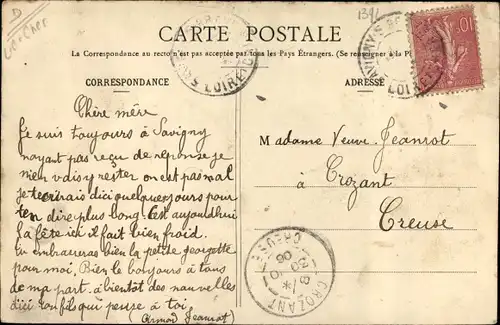 D
Loir et Cher
1391
CARTE POSTALE
La Correspondance au recto n'est pas acceptée par tous les Pays Étrangers. (Se renseigner à la P
CORRESPONDANCE
ADRESSE
10
LOIR-ET-CHER
Chère mère
Je suis toujours à Savigny
noyant pas reçu de reponse je
mien vais y rester on est pas mal
je tecrirais dici quelque jours pour
ten dire plus long. Cest aujourdhui
la fête ici il fait bien froid.
tu embraceras bien la petite georgette
pour moi. Bien le bonjours à tous
de ma part. à bientot des nouvelles
dici ton fils qui pense à toi,
Armand Jeanrot
Madame Veuve Jeanrot
à Crozant
Creuse
CROZANT
CREUSE
8/*
30-10
06